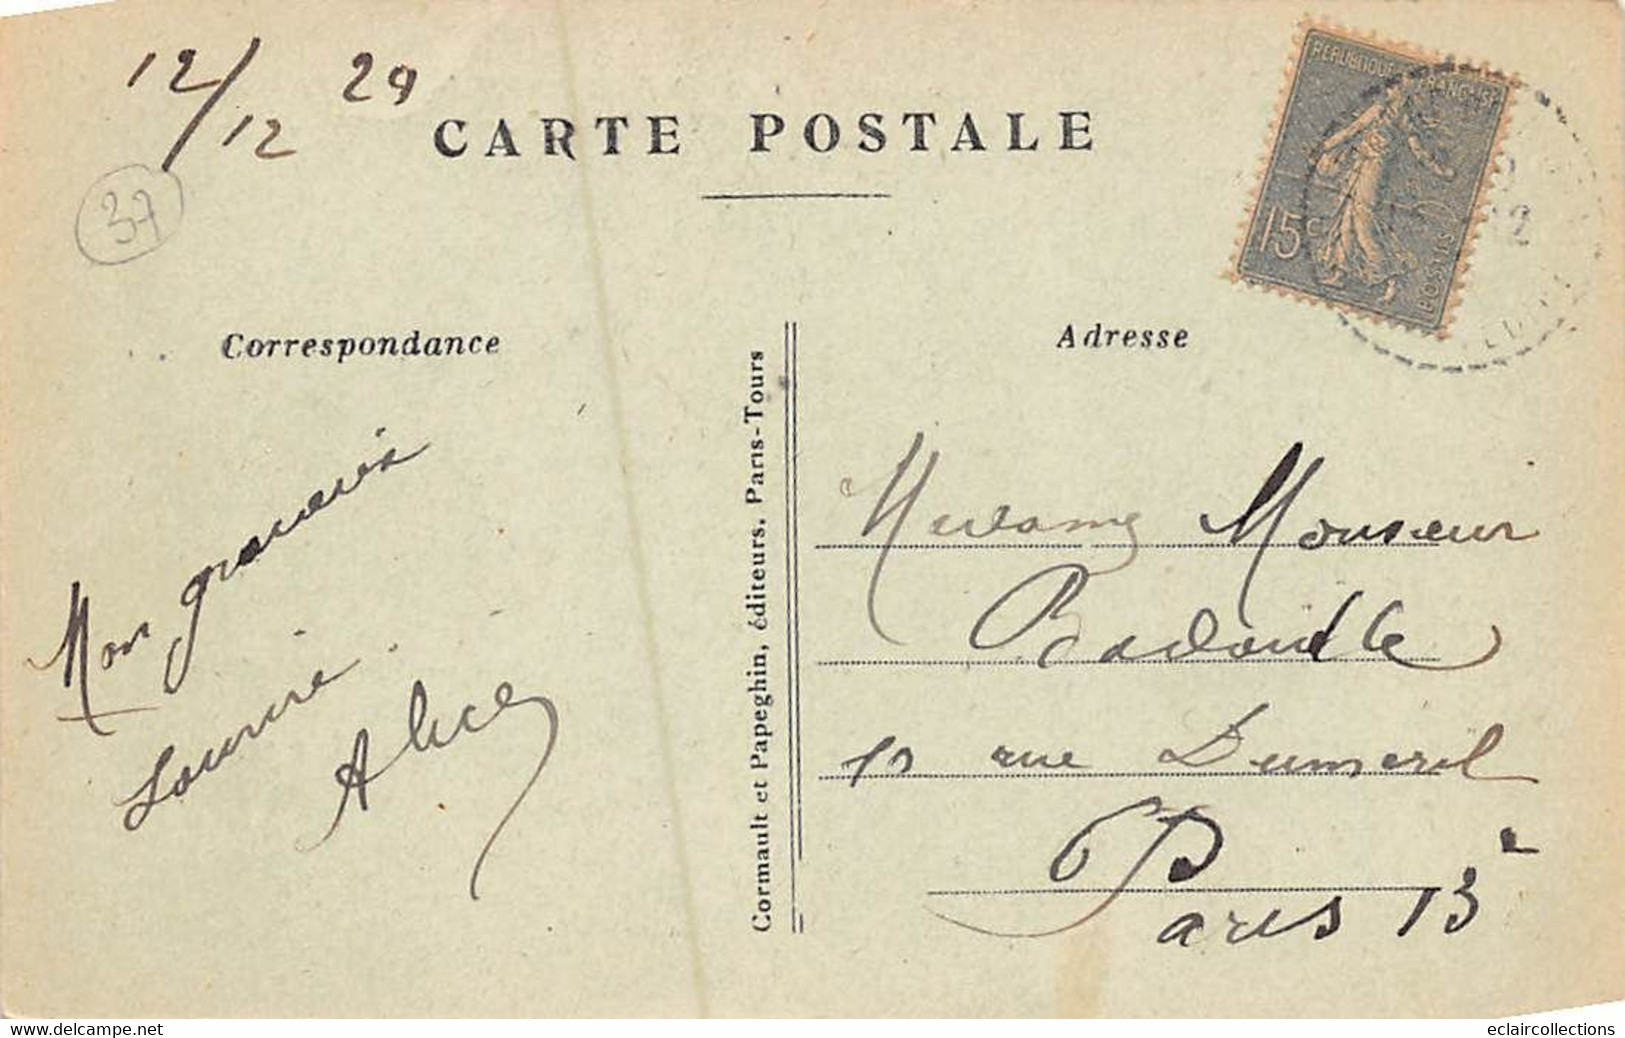 12/12 29
CARTE POSTALE
37
REPUBLIQUE FRANÇAISE
15c
POSTES
Correspondance
Adresse
Cormault et Papeghin, éditeurs, Paris-Tours
Mon gracieux
Sourire.
Alice
Madame Monsieur
rue Dumeril
Paris 13e
www.delcampe.net
eclaircollections